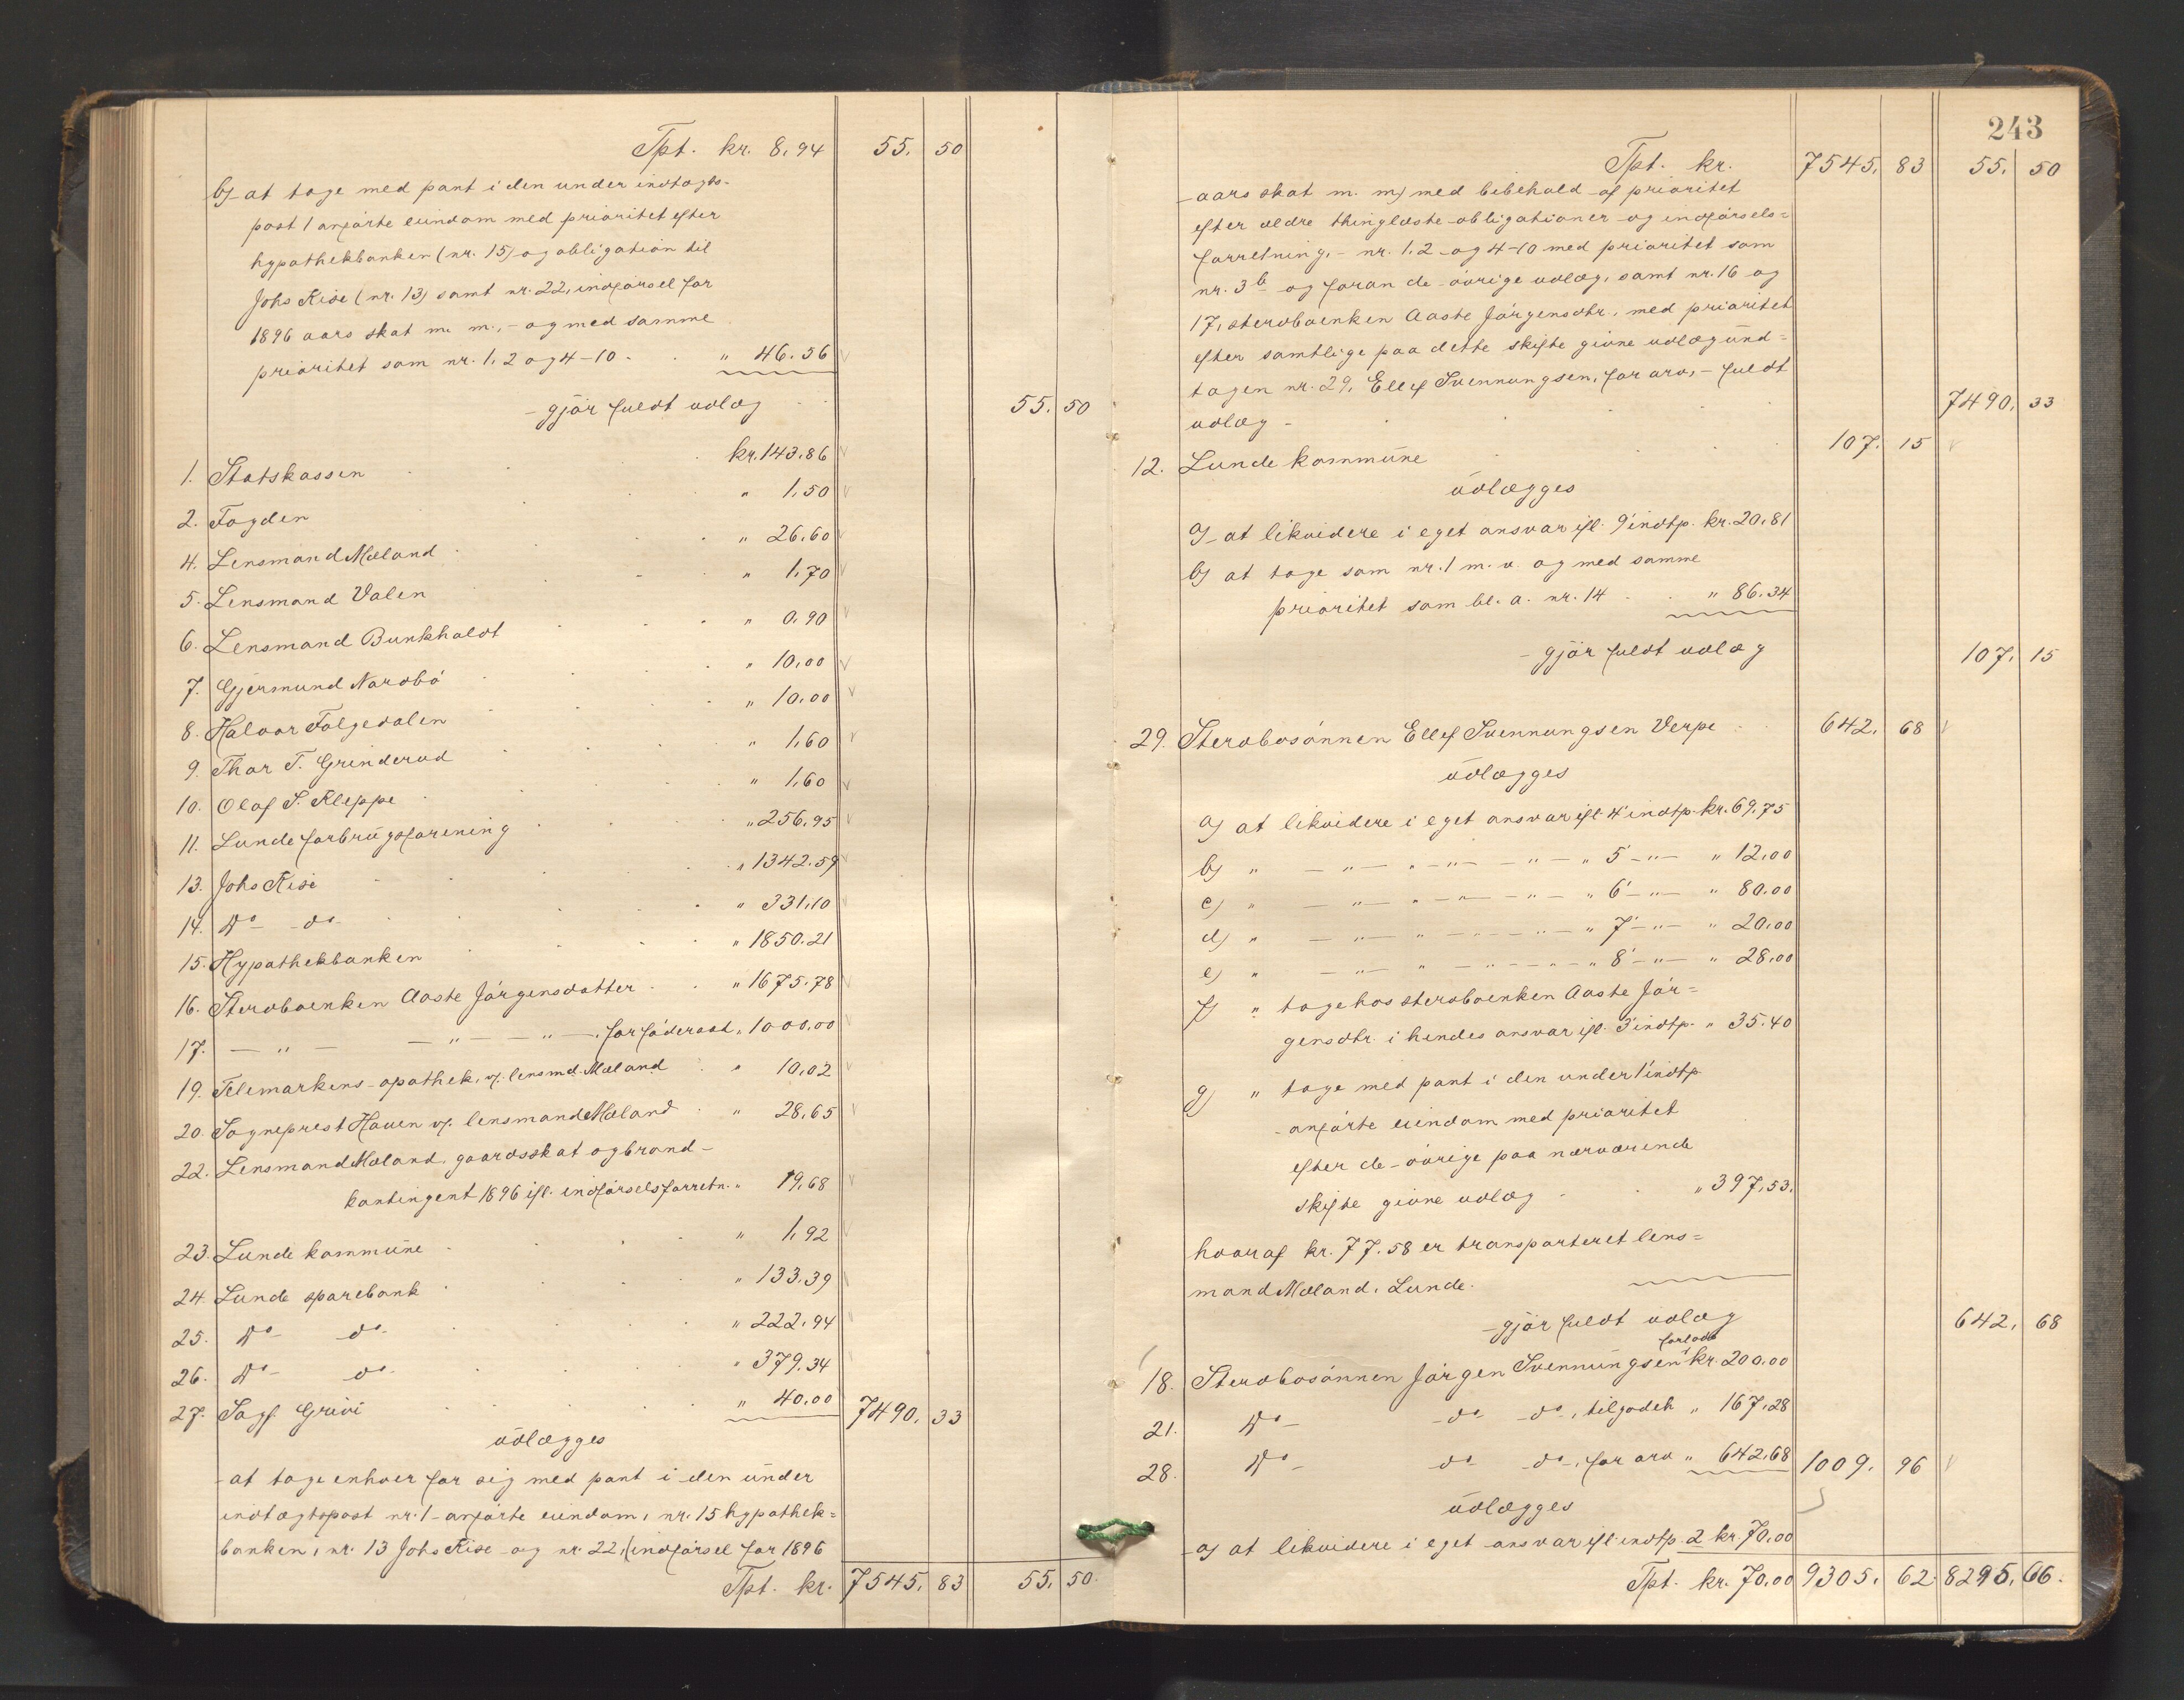 Tpt. kr. 8,94 55, 50
b) at tage med pant i den under indtægts-
post 1 anførte eiendom med prioritet efter
hypothekbanken (nr. 15) og obligation til
Johs Rise (nr. 13) samt nr. 22, indførsel for
1896 aars skat m. m., - og med samme
prioritet som nr. 1, 2 og 4-10 - " 46.56
- gjör fuldt udlæg 55, 50
1. Statskassen kr. 143.86
2. Fogden " 1,50
4. Lensmand Mæland " 26,60
5. Lensmand Valen " 1,70
6. Lensmand Bunkholdt " 0,90
7. Gjermund Nordbö " 10,00
8. Halvor Folgedalen " 10,00
9. Thor T. Grinderud " 1,60
10. Olaf S. Kleppe " 1,60
11. Lunde forbrugsforening " 256,95
13. Johs Rise " 1342.59
14. Do do " 331,10
15. Hypothekbanken " 1850.21
16. Stervboenken Aaste Jörgensdatter " 1675.78
17. — " — — " — — " —, for föderaad " 1000,00
19. Telemarkens apothek, v. lensmd. Mæland " 10,02
20. Sogneprest Hauen v. lensmand Mæland " 28,65
22. Lensmand Mæland, gaardsskat og brand-
kontingent 1896 ifl. indførselsforretn. " 19,68
23. Lunde kommune " 1,92
24. Lunde sparebank " 133,39
25. Do do " 222,94
26. Do do " 379,34
27. Sagf. Grivi " 40,00 7490, 33
udlægges
at tage enhver for sig med pant i den under
indtægtspost nr. 1 anførte eiendom, nr. 15 hypothek=
banken, nr. 13 Johs Rise og nr. 22, (indførsel for 1896
Tpt. kr. 7545, 83 55, 50.
243
Tpt. kr. 7545, 83 55, 50
aars skat m. m) med bibehold af prioritet
efter ældre thinglæste obligationer og indførsels=
forretning, - nr. 1, 2 og 4-10 med prioritet som
nr. 3 b og foran de övrige udlæg, samt nr. 16 og
17, stervboenken Aaste Jörgensdtr., med prioritet
efter samtlige paa dette skifte givne udlæg und=
tagen nr. 29, Ellef Svennungsen, for arv, - fuldt
udlæg - 7490, 33
12. Lunde kommune 107. 15
udlægges
a) at likvidere i eget ansvar ifl. 9' indtp. kr. 20,81
b) at tage som nr. 1 m. v. og med samme
prioritet som bl. a. nr. 14 " 86.34
- gjör fuldt udlæg 107, 15
29. Stervbosönnen Ellef Svennungsen Verpe 642, 68
udlægges
a) at likvidere i eget ansvar ifl. 4' indtp. kr. 69,75
b) " — " — " — " — — " — " 5' — " — " 12,00
c) " — " — " — " — — " — " 6' — " — " 80.00
d) " — " — " — " — — " — " 7' — " — " 20,00
e) " — " — " — " — — " — " 8' — " — " 28,00
f) " tage hos stervboenken Aaste Jör=
gensdtr. i hendes ansvar ifl. 3' indtp. " 35.40
g) " tage med pant i den under 1' indtp
anførte eiendom med prioritet
efter de övrige paa nærværende
skifte givne udlæg " 397,53.
hvoraf kr. 77.58 er transporteret lens=
mand Mæland, Lunde.
- gjör fuldt udlæg 642, 68
18. Stervbosönnen Jörgen Svennungsen forlods kr. 200.00
21. Do do do, tilgodeh " 167,28
28. Do do do, for arv " 642,68 1009, 96
udlægges
a) at likvidere i eget ansvar ifl. indtp. 2 kr. 70,00
Tpt. kr. 70,00 9305, 62 8295, 66.